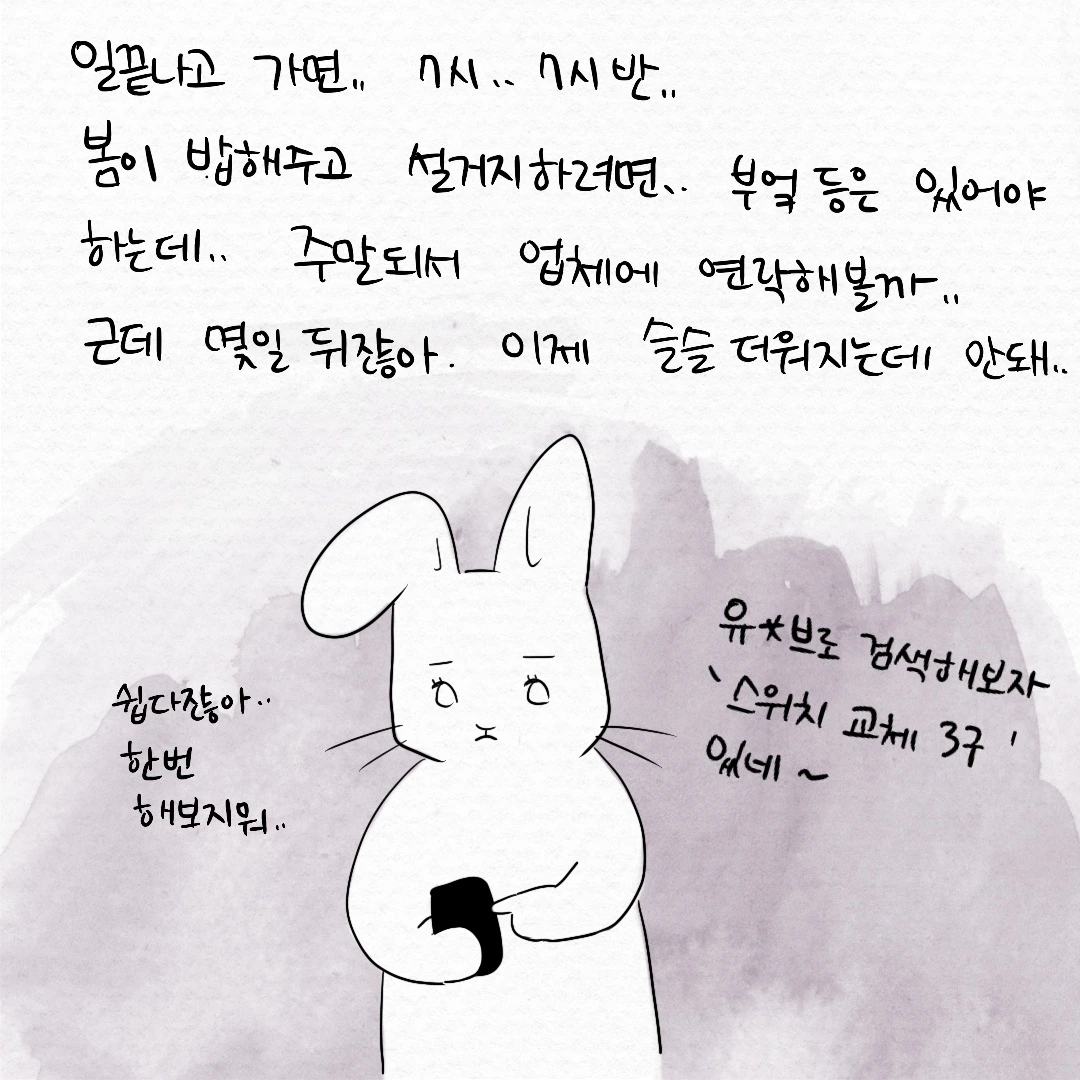 일끝나고 가면.. 7시.. 7시 반..
봄이 밥해주고 설거지하려면.. 부엌 등은 있어야
하는데.. 주말되서 업체에 연락해볼까..
근데 몇일 뒤잖아. 이제 슬슬 더워지는데 안돼..
유*브로 검색해보자
'스위치 교체 3구'
있네~
쉽다잖아..
한번
해보지뭐..